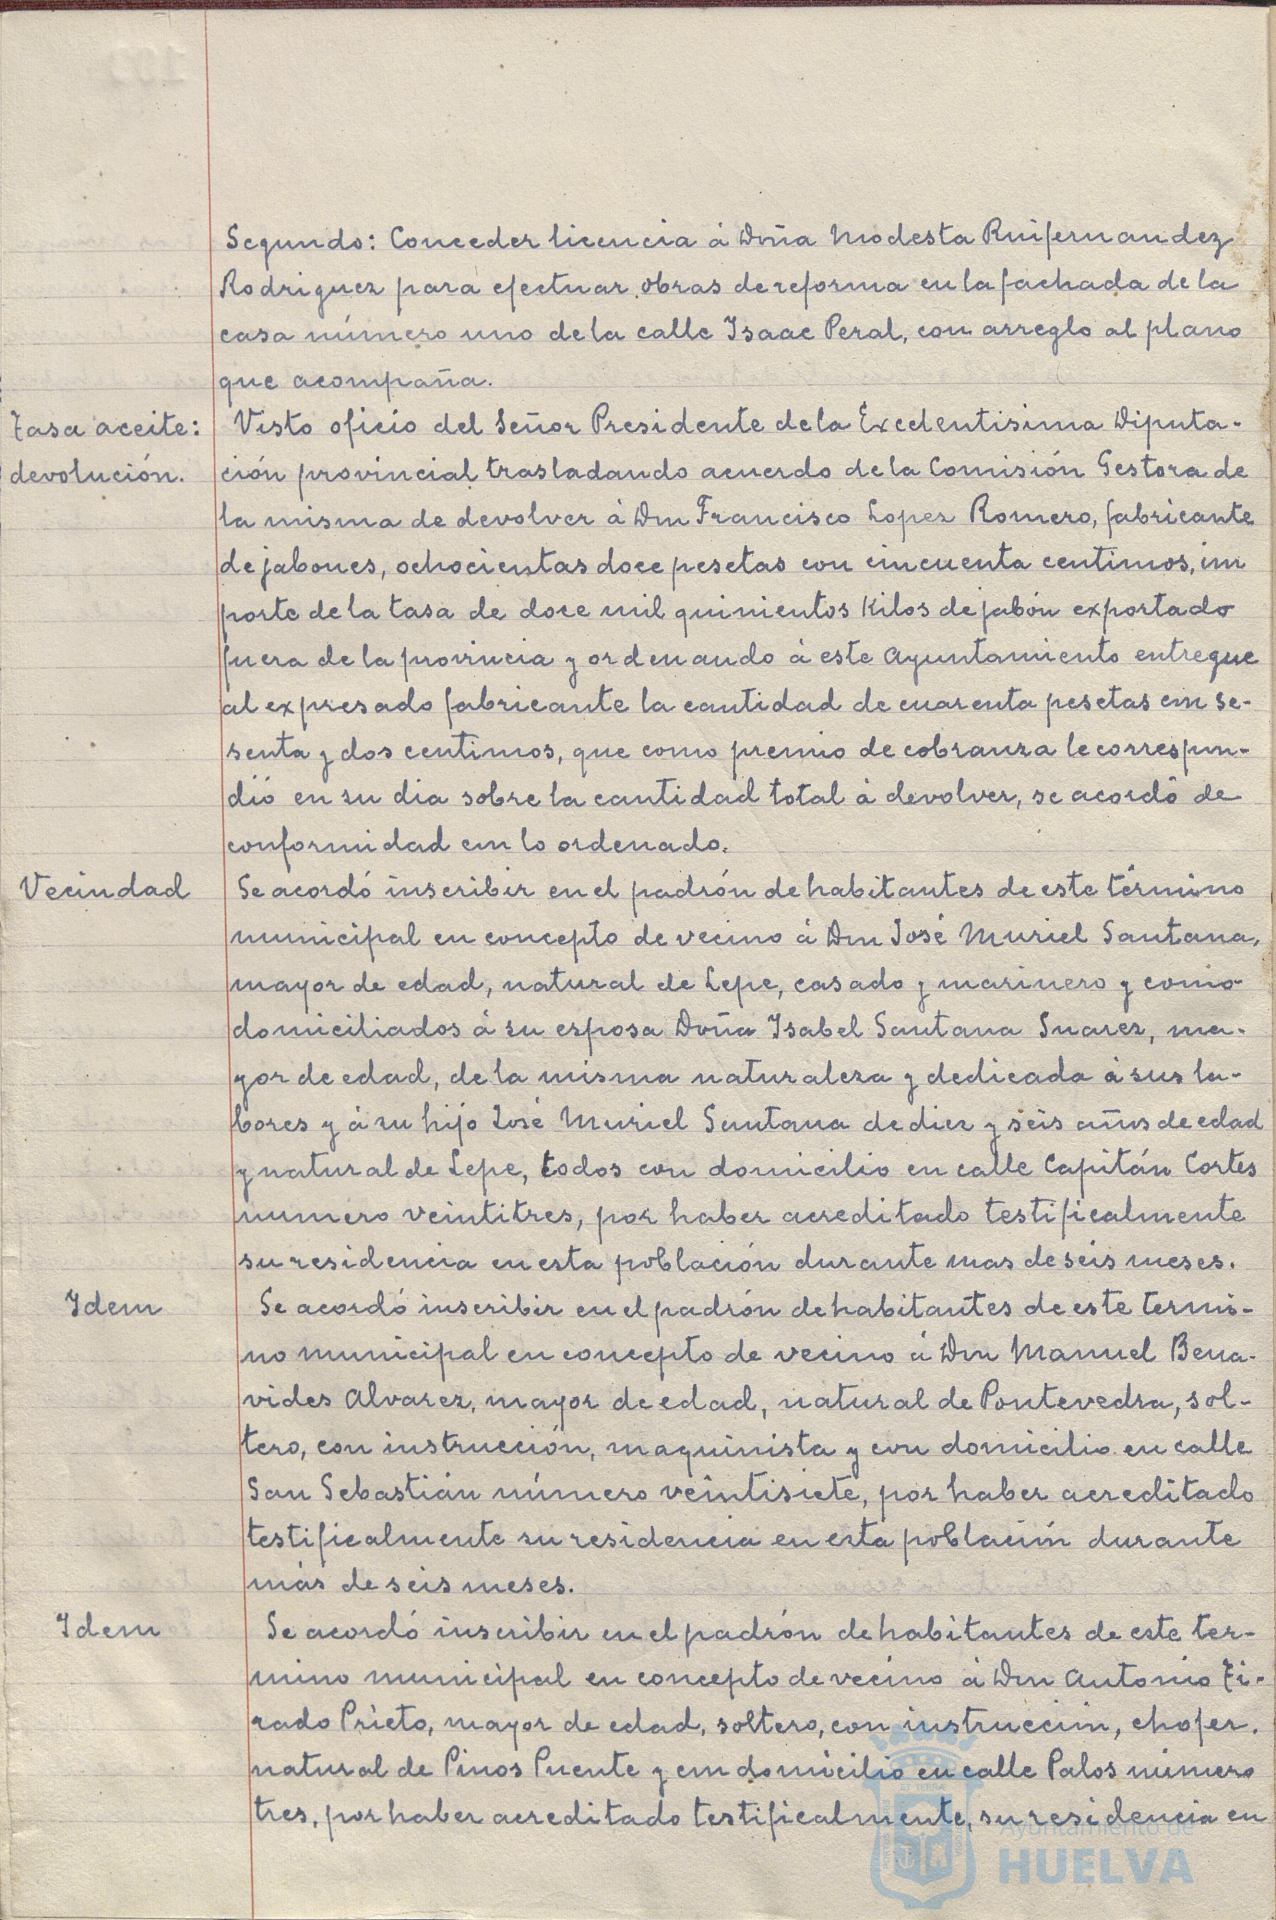 Segundo: Conceder licencia á Doña Modesta Ruifernandez
Rodriguez para efectuar obras de reforma en la fachada de la
casa número uno de la calle Isaac Peral, con arreglo al plano
que acompaña.
Tasa aceite: Visto oficio del Señor Presidente de la Excelentisima Diputa-
devolución. ción provincial trasladando acuerdo de la Comisión Gestora de
la misma de devolver á Don Francisco Lopez Romero, fabricante
de jabones, ochocientas doce pesetas con cincuenta centimos, im
porte de la tasa de doce mil quinientos Kilos de jabón exportado
fuera de la provincia y ordenando á este Ayuntamiento entregue
al expresado fabricante la cantidad de cuarenta pesetas con se-
senta y dos centimos, que como premio de cobranza le correspon-
dió en su dia sobre la cantidad total á devolver, se acordó de
conformidad con lo ordenado.
Vecindad Se acordó inscribir en el padrón de habitantes de este término
municipal en concepto de vecino á Don José Muriel Santana,
mayor de edad, natural de Lepe, casado y marinero y como
domiciliados á su esposa Doña Isabel Santana Suarez, ma-
yor de edad, de la misma naturaleza y dedicada á sus la-
bores y á su hijo José Muriel Santana de diez y seis años de edad
y natural de Lepe, todos con domicilio en calle Capitán Cortes
numero veintitres, por haber acreditado testificalmente
su residencia en esta población durante mas de seis meses.
Idem Se acordó inscribir en el padrón de habitantes de este termi-
no municipal en concepto de vecino á Don Manuel Bena-
vides Alvarez, mayor de edad, natural de Pontevedra, sol-
tero, con instrucción, maquinista y con domicilio en calle
San Sebastián número veintisiete, por haber acreditado
testificalmente su residencia en esta población durante
más de seis meses.
Idem Se acordó inscribir en el padrón de habitantes de este ter-
mino municipal en concepto de vecino á Don Antonio Ti-
rado Prieto, mayor de edad, soltero, con instrucción, chofer,
natural de Pinos Puente y con domicilio en calle Palos número
tres, por haber acreditado testificalmente, su residencia en
Ayuntamiento de
HUELVA